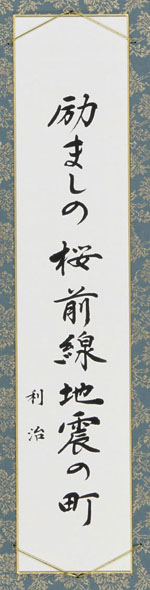 励ましの桜前線地震の町
利治